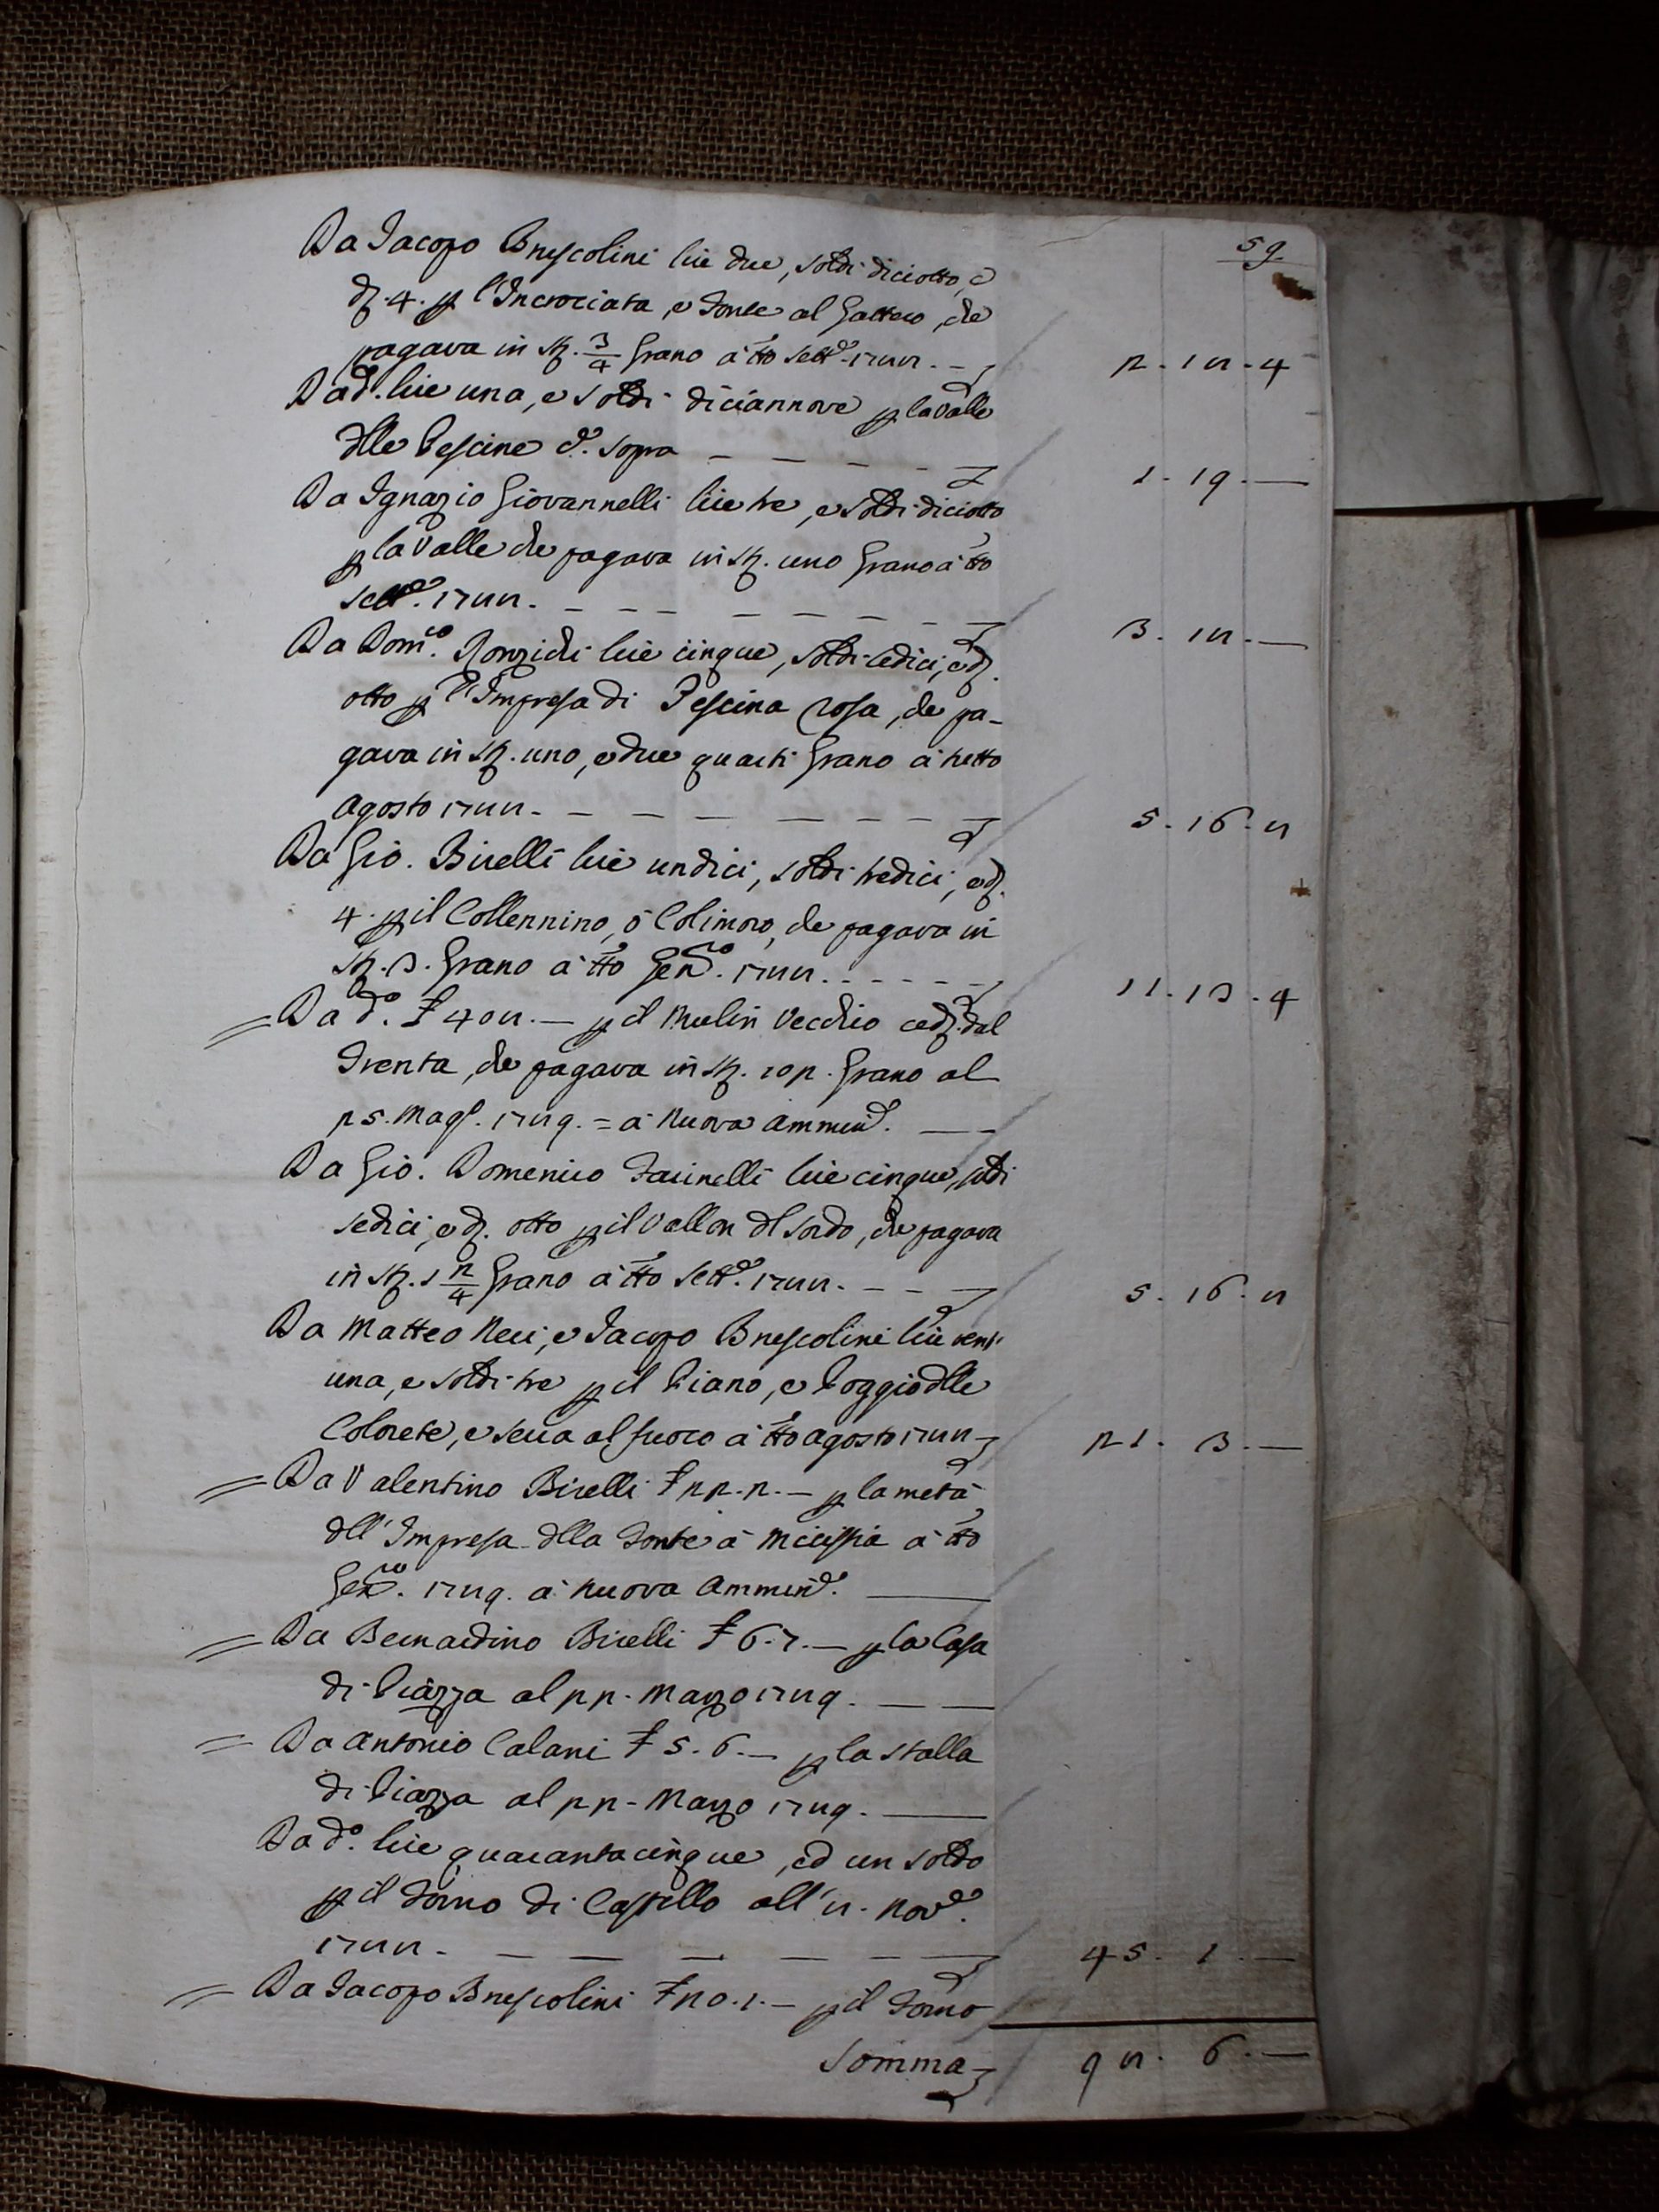 59
Da Jacopo Brescolini lire due, soldi diciotto, e
dz. 4. p l'Incrociata, e Fonte al Gattero, che
pagava in st. 3/4 Grano à tto Settᵉ. 1788. — 2. 18. 4
Da dº. lire una, e soldi diciannove p la Valle
dlle Pescine dº. sopra — — — — — 1. 19. —
Da Ignazio Giovannelli lire tre, e soldi diciotto
p la Valle che pagava in st. uno Grano à tto
Settᵉ. 1788. — — — — — — — — 3. 18. —
Da Domᶜᵒ. Ronzichi lire cinque, soldi sedici, e dz.
otto p l'Impresa di Pescina rosa, che pa-
gava in st. uno, e due quarti Grano à tutto
Agosto 1788. — — — — — — — — 5. 16. 8
Da Gio. Birelli lire undici, soldi tredici, e dz.
4. p il Collennino, ò Colimoro, che pagava in
st. 3. Grano à tto Genᵒ. 1788. - - - - - 11. 13. 4
= Da dº. £ 408. — p il Mulin Vecchio ced. dal
Trenta, che pagava in st. 102. Grano al
25. Magº. 1789. = à Nuova Amminᵉ. — —
Da Gio. Domenico Facinelli lire cinque, soldi
sedici, e dz. otto p il Vallon dl Sordo, che pagava
in st. 1 2/4 Grano à tto Settᵉ. 1788. — — — 5. 16. 8
Da Matteo Neri, e Jacopo Brescolini lire vent'
una, e soldi tre p il Piano, e Poggio dlle
Colorete, e Serra al fuoco à tto Agosto 1788 — 21. 3. —
= Da Valentino Birelli £ 22. 2. — p la metà
dll'Impresa dlla Fonte à à tto
Genᵒ. 1789. à Nuova Amminᵉ. ——
= Da Bernardino Birelli £ 6. 7. — p la Casa
di Piazza al 22. Marzo 1789. — —
= Da Antonio Calani £ 5. 6. — p la stalla
di Piazza al 22 - Marzo 1789. ——
Da dº. lire quarantacinque, ed un soldo
p il Forno di Castello all'8. Novᵉ.
1788. — — — — — — — 45. 1. —
= Da Jacopo Brescolini £ 20. 1. — p il Forno
Somma — 98. 6. —